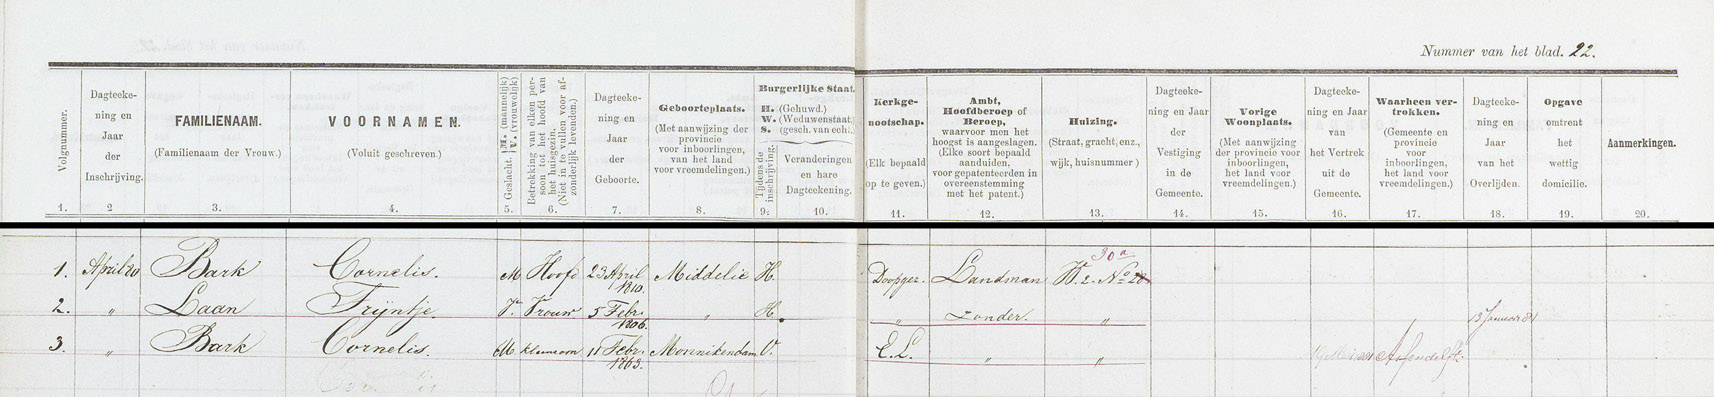 Nummer van het blad. 22.
Volgnummer.
1.
Dagteeke-
ning en
Jaar
der
Inschrijving.
2
FAMILIENAAM.
(Familienaam der Vrouw.)
3.
VOORNAMEN.
(Voluit geschreven.)
4.
Geslacht. M. (mannelijk)
V. (vrouwelijk)
5.
Betrekking van elken per-
soon tot het hoofd van
het huisgezin.
(Niet in te vullen voor af-
zonderlijk levenden.)
6.
Dagteeke-
ning en
Jaar
der
Geboorte.
7.
Geboorteplaats.
(Met aanwijzing der
provincie
voor inboorlingen,
van het land
voor vreemdelingen.)
8.
Burgerlijke Staat.
H. (Gehuwd.)
W. (Weduwenstaat.)
S. (gesch. van echt.)
Tijdens de
inschrijving.
9.
Veranderingen
en hare
Dagteekening.
10.
Kerkge-
nootschap.
(Elk bepaald
op te geven.)
11.
Ambt,
Hoofdberoep of
Beroep,
waarvoor men het
hoogst is aangeslagen.
(Elke soort bepaald
aanduiden,
voor gepatenteerden in
overeenstemming
met het patent.)
12.
Huizing.
(Straat, gracht, enz.,
wijk, huisnummer)
13.
Dagteeke-
ning en Jaar
der
Vestiging
in de
Gemeente.
14.
Vorige
Woonplaats.
(Met aanwijzing
der provincie voor
inboorlingen,
het land voor
vreemdelingen.)
15.
Dagteeke-
ning en Jaar
van
het Vertrek
uit de
Gemeente.
16.
Waarheen ver-
trokken.
(Gemeente en
provincie
voor
inboorlingen,
het land voor
vreemdelingen.)
17.
Dagteeke-
ning en
Jaar
van het
Overlijden.
18.
Opgave
omtrent
het
wettig
domicilie.
19.
Aanmerkingen.
20.
30a
1. April 20 Bark Cornelis. M Hoofd 23 April 1810. Middelie H. Doopgez. Landman W. 2. No 28
2. " Laan Trijntje. V. Vrouw 5 Febr. 1806. " H. " Zonder. " 13 Januari 81
3. " Bark Cornelis. M. kleinzoon 11 Febr. 1863. Monnikendam O. E.L. " " Assendelft